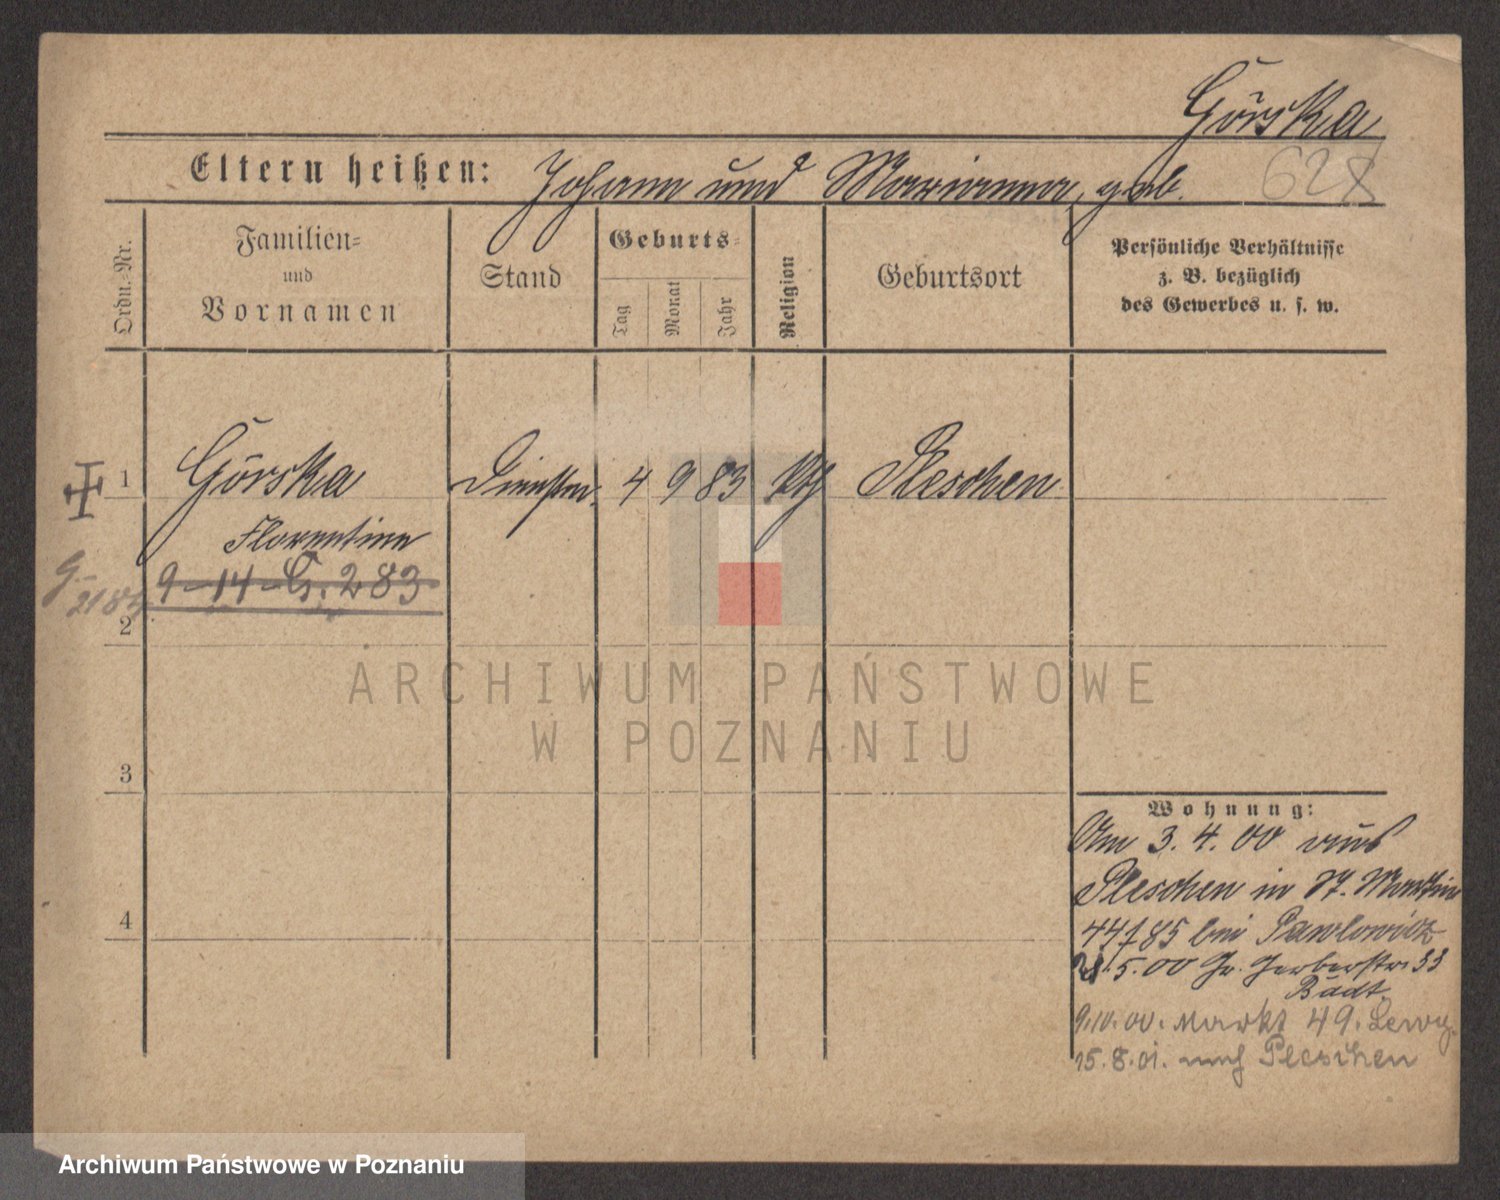 Górska
Eltern heißen: Johann und Marianna, geb.
628
Ordn.-Nr.
Familien-
und
Vornamen
Stand
Geburts-
Tag
Monat
Jahr
Religion
Geburtsort
Persönliche Verhältnisse
z. B. bezüglich
des Gewerbes u. s. w.
1 Górska Dienstm. 4 9 83 kth Pleschen
Florentine
9-14-G. 283
G-
2
ARCHIWUM PAŃSTWOWE
W POZNANIU
3
Wohnung:
Am 3. 4. 00 aus
Pleschen in St. Martin
44/85 bei Pawlowicz
5.00 Gr. Gerberstr. 33
Badt.
4
9.10.00. Markt 49. Lewy.
15.8.01. nach Pleschen
Archiwum Państwowe w Poznaniu